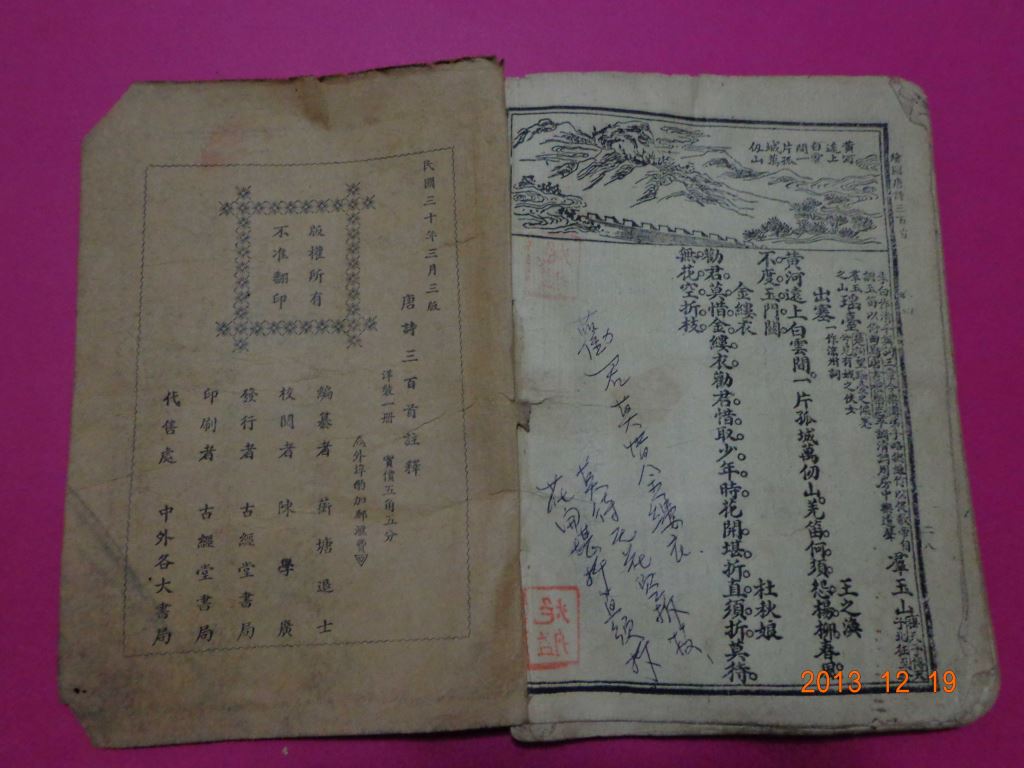 黃河
遠上
白雲
間一
片孤
城萬
仞山
繪圖唐詩三百首
羣玉山
瑤臺
出塞
一作涼州詞
王之渙
黃河遠上白雲間。一片孤城萬仞山。羌笛何須怨楊柳。春風
不度玉門關。
金縷衣
杜秋娘
勸君莫惜金縷衣。勸君惜取少年時。花開堪折直須折。莫待
無花空折枝。
勸君莫惜金縷衣
花開堪折直須折
莫待無花空折枝
民國三十年三月三版
唐詩三百首註釋
洋裝一冊 實價五角五分
外埠酌加郵滙費
版權所有
不准翻印
編纂者 蘅塘退士
校閱者 陳學廣
發行者 古經堂書局
印刷者 古經堂書局
代售處 中外各大書局
2013 12 19